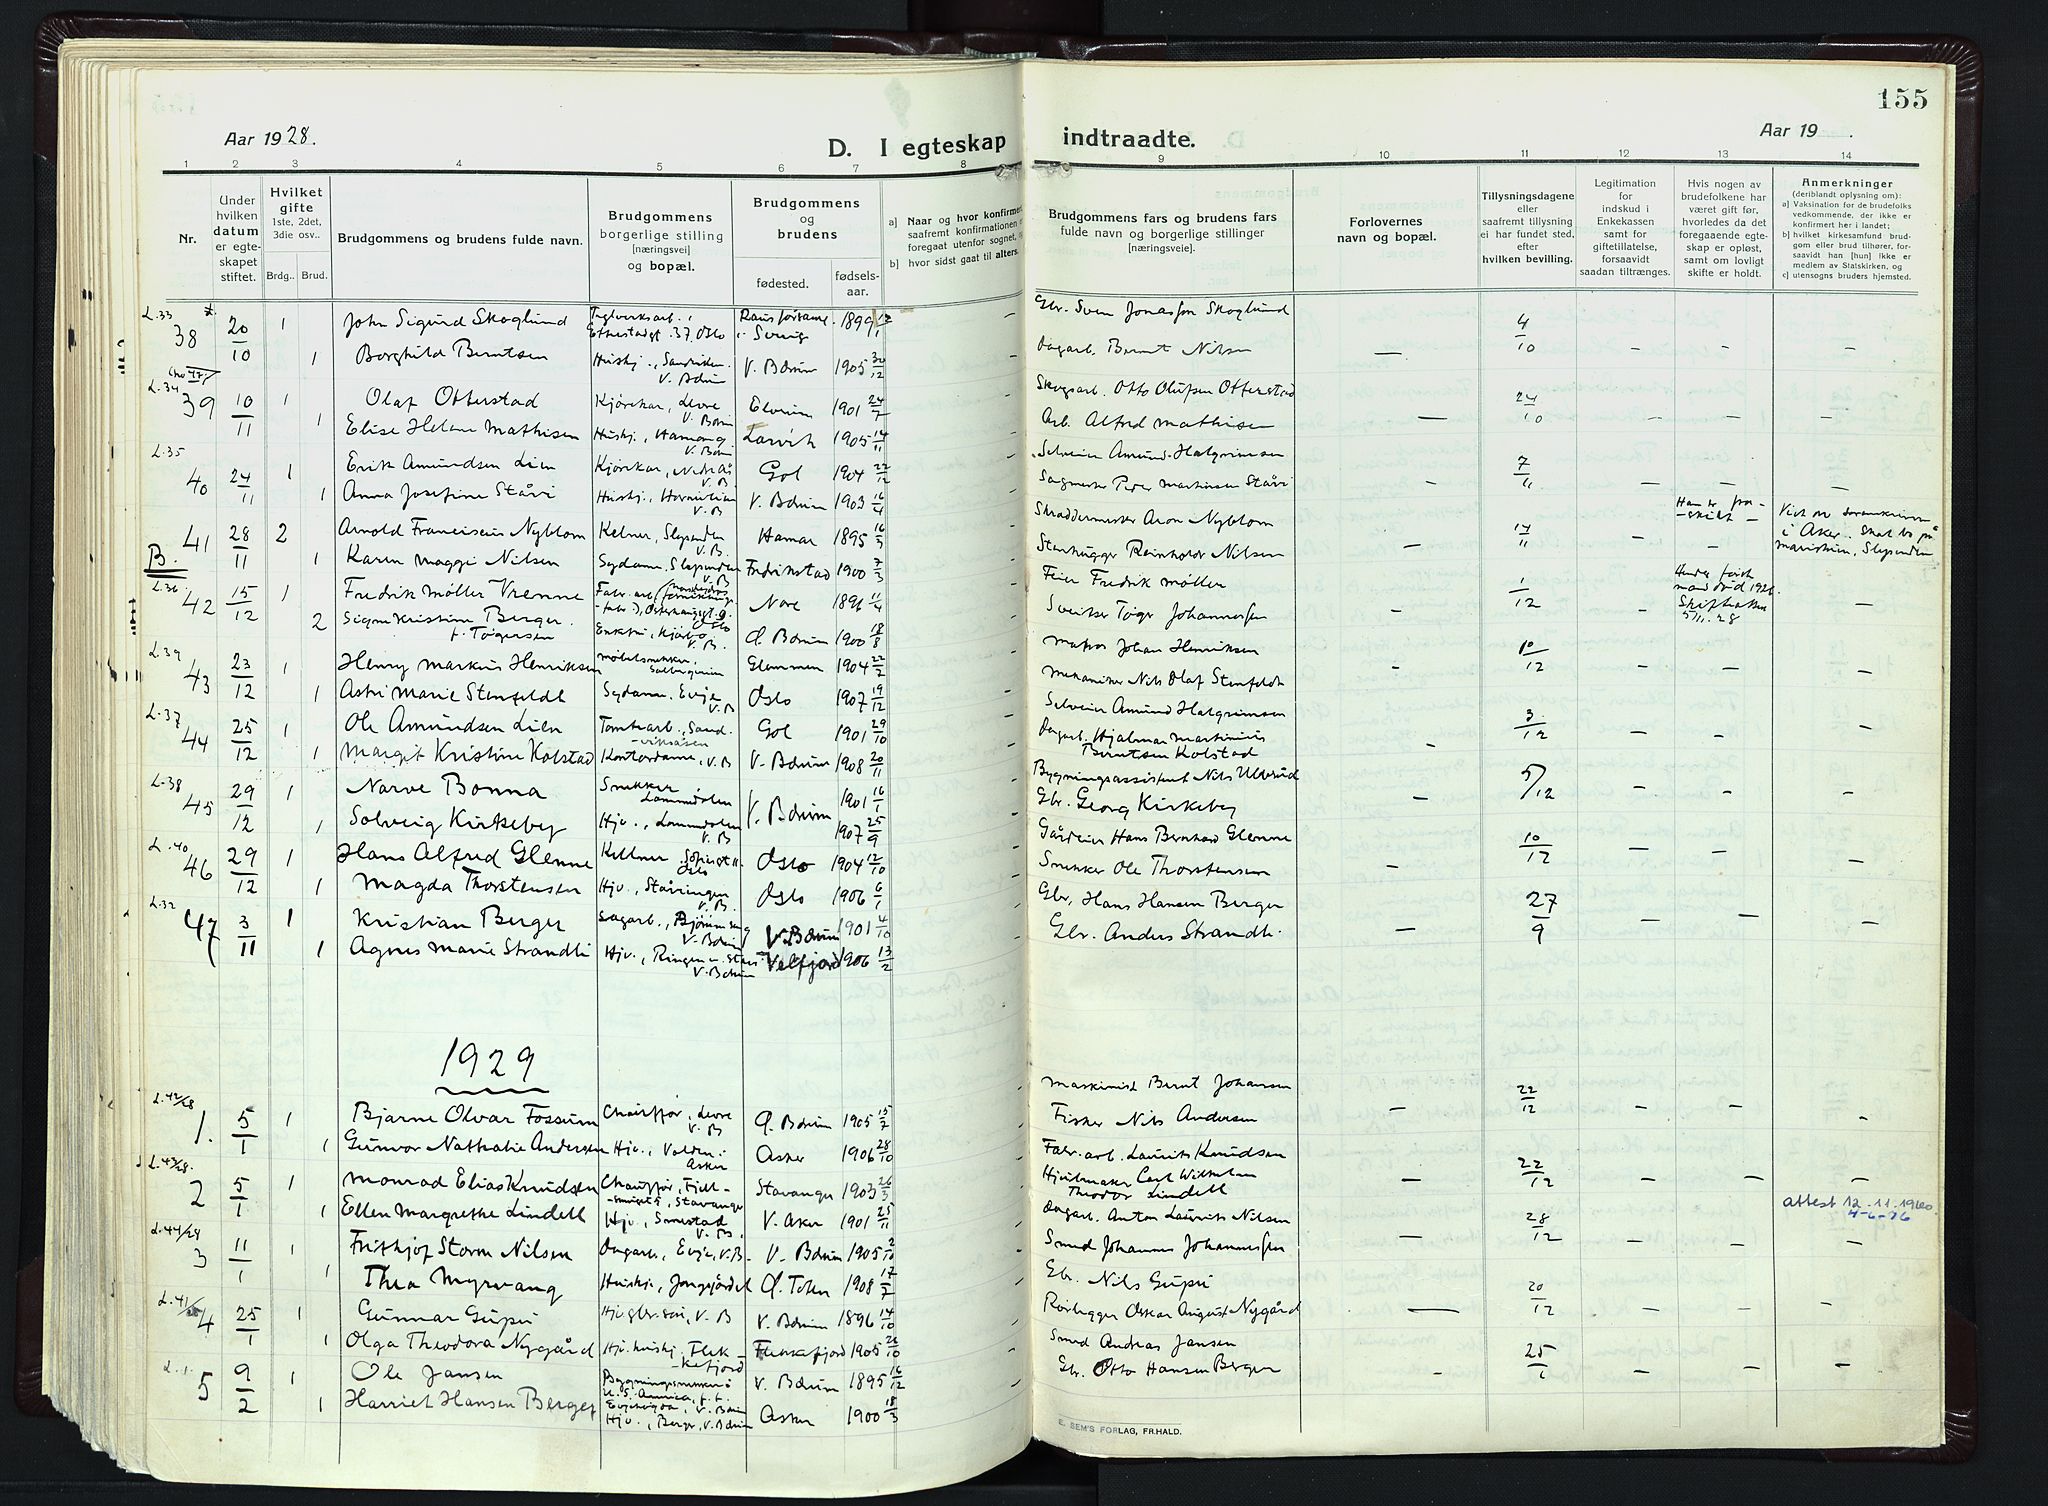 155
Aar 1928.
D. I egteskap indtraadte.
Aar 19 .
1 2 3 4 5 6 7 8 9 10 11 12 13 14
Nr.
Under
hvilken
datum
er egte-
skapet
stiftet.
Hvilket
gifte
1ste, 2det,
3die osv..
Brdg.. Brud.
Brudgommens og brudens fulde navn.
Brudgommens
borgerlige stilling
[næringsvei]
og bopæl.
Brudgommens
og
brudens
fødested.
fødsels-
aar.
a) Naar og hvor konfirmert
saafremt konfirmationen
foregaat utenfor sognet,
b) hvor sidst gaat til alters.
Brudgommens fars og brudens fars
fulde navn og borgerlige stillinger
[næringsveie].
Forlovernes
navn og bopæl.
Tillysningsdagene
eller
saafremt tillysning
ei har fundet sted,
efter
hvilken bevilling.
Legitimation
for
indskud i
Enkekassen
samt for
giftetillatelse,
forsaavidt
saadan tiltrænges.
Hvis nogen av
brudefolkene har
været gift før,
hvorledes da det
foregaaende egte-
skap er opløst,
samt om lovligt
skifte er holdt.
Anmerkninger
(deriblandt oplysning om):
a) Vaksination for de brudefolks
vedkommende, der ikke er
konfirmert her i landet;
b) hvilket kirkesamfund brud-
gom eller brud tilhører, for-
saavidt han [hun] ikke er
medlem av Statskirken, og
c) utensogns bruders hjemsted.
L.33
38 20/10 1 John Sigurd Skoglund 1899 Gbr. Sven Jonasson Skoglund 4/10
1 Borghild Berntsen Hushj., Sandviken. V. Bærum V. Bærum 1905 30/12 Dagarb. Bernt Nilsen
L.34
39 10/11 1 Olaf Otterstad Kjørekar, Levre V. Bærum Elverum 1901 24/7 Skogsarb. Otto Olufsen Otterstad 24/10
1 Elise Helene Mathisen Hushj., Hamang. V. Bærum Larvik 1905 14/11 Arb. Alfred Mathisen
L.35
40 24/11 1 Erik Amundsen Lien Kjørekar, V. B Gol 1904 22/12 Selveier Amund Halgrimsen 7/11
1 Anna Josefine Ståvi Hushj. V. B V. Bærum 1903 16/4 Sagmester Peder Martinsen Ståvi
41 28/11 2 Arnold Franciscus Nyblom Kelner, Slependen V. B. Hamar 1895 16/3 Skræddermester Aron Nyblom 14/11 Han er fra-skilt
Viet av sorenskriveren i Asker. Skal bo på Mariehim, Slependen
B. 1 Karen Maggi Nilsen Sydame, Slependen V. B Fredrikstad 1900 7/3 Stenhugger Reinholdt Nilsen
L.36
42 15/12 1 Fredrik Møller Vrenne Fabr. arb. Oslo Nore 1896 11/4 Feier Fredrik Møller 1/12 Hendes første mand død 1926. Skifteattest 5/11.28
2 Signe Kristine Berger f. Tøgersen Enkefru, Kjørbo V. B. Ø. Bærum 1900 18/8 Sveitser Tøger Johannessen
L.39
43 23/12 1 Henry Markus Henriksen Møbelsnekker, Glemmen 1904 22/2 Matros Johan Henriksen 10/12
1 Astri Marie Stenfeldt Sydame, Evje V. B Oslo 1907 19/12 Mekaniker Nils Olaf Stenfeldt
L.37
44 25/12 1 Ole Amundsen Lien Tomtearb., Sand-viksåsen Gol 1901 29/10 Selveier Amund Halgrimsen 3/12
1 Margit Kristine Kolstad Kontordame, V. B V. Bærum 1908 20/11 Dagarb. Hjalmar Martinius Berntsen Kolstad
L.38
45 29/12 1 Narve Bonna Snekker, Lommedalen V. Bærum 1901 16/1 Bygningsassistent Nils Ulverud 5/12
1 Solveig Kirkeby Hjv., Lommedalen V. B 1907 25/9 Gbr. Georg Kirkeby
L.40
46 29/12 1 Hans Alfred Glenne Kellner, Sofiesgt. 11 Oslo Oslo 1904 12/10 Gårdeier Hans Bernhard Glenne 10/12
1 Magda Thorstensen Hjv., Ståvivegen V. B. Oslo 1906 6/1 Snekker Ole Thorstensen
L.32
47 3/11 1 Kristian Berger Sagarb., Bjørumsag V. Bærum V. Bærum 1901 4/10 Gbr. Hans Hansen Berger 27/9
1 Agnes Marie Strandli Hjv., V. Bærum Velfjord 1906 13/2 Gbr. Anders Strandli
1929
L.42/28
1. 5/1 1 Bjarne Olvar Fossum Chauffør, Levre V. B Ø. Bærum 1905 15/2 Maskinist Bernt Johansen 22/12
1 Gunvor Nathalie Andersen Hjv., Valden. Asker Asker 1906 28/10 Fisker Nils Andersen
L.43/28.
2 5/1 1 Monrad Elias Knudsen Chauffør, Stavanger Stavanger 1903 26/3 Fabr. arb. Laurits Knudsen 22/12
1 Ellen Margrethe Lindell Hjv., Smestad V. B. V. Aker 1901 25/11 Hjulmaker Carl Wilhelm Theodor Lindell
attest 12.11.1960. 4-6-76
L.44/28
3 11/1 1 Frithjof Storm Nilsen Dagarb., Evje, V. B. V. Bærum 1905 2/10 Dagarb. Anton Laurits Nilsen 28/12
1 Thea Myrvang Hushj., Jongsjordet Ø. Toten 1908 17/7 Smed Johannes Johannessen
L.41/28
4 25/1 1 Gunnar Gupu Hj. gbr. søn, V. B V. Bærum 1896 14/10 Gbr. Nils Gupu 20/12
1 Olga Theodora Nygård Hj. hushj., Flek-kefjord Flekkefjord 1905 26/10 Rørlegger Oskar August Nygård
L.1.
5 9/2 1 Ole Jansen Bygningssnekker i U. S. America V. Bærum 1895 16/12 Smed Andreas Jansen 25/1
1 Harriet Hansen Berger Hjv., Berger, V. Bærum Asker 1900 18/3 Gbr. Otto Hansen Berger
E. SEM'S FORLAG, FR.HALD.